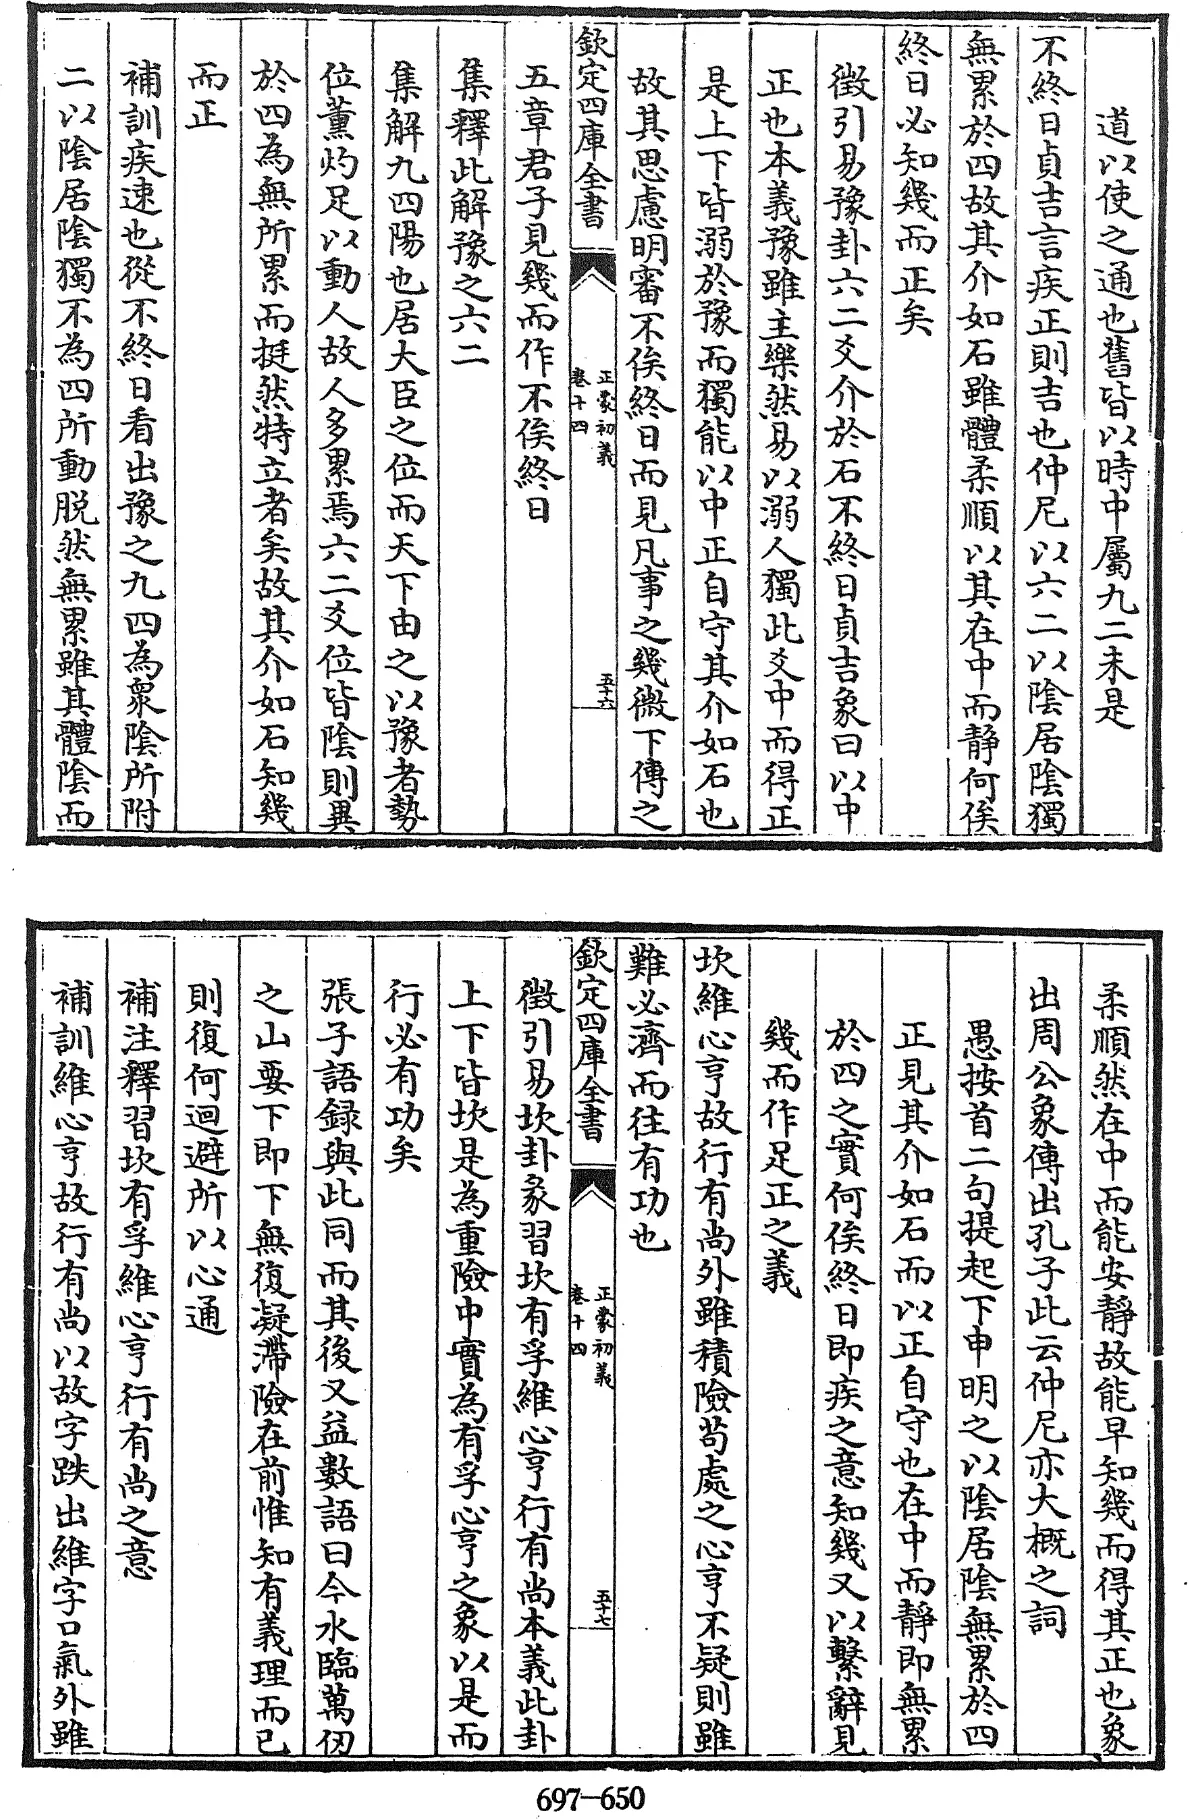 道以使之通也舊皆以時中屬九二未是
不終日貞吉言疾正則吉也仲尼以六二以陰居陰獨
無累於四故其介如石雖體柔順以其在中而静何俟
終日必知幾而正矣
徵引易豫卦六二爻介於石不終日貞吉象曰以中
正也本義豫雖主樂然易以溺人獨此爻中而得正
是上下皆溺於豫而獨能以中正自守其介如石也
故其思慮明審不俟終日而見凡事之幾微下傳之
欽定四庫全書
正蒙初義
卷十四
五十六
五章君子見幾而作不俟終日
集釋此解豫之六二
集解九四陽也居大臣之位而天下由之以豫者勢
位薰灼足以動人故人多累焉六二爻位皆陰則異
於四為無所累而挺然特立者矣故其介如石知幾
而正
補訓疾速也從不終日看出豫之九四為衆陰所附
二以陰居陰獨不為四所動脱然無累雖其體陰而
柔順然在中而能安静故能早知幾而得其正也象
出周公象傳出孔子此云仲尼亦大概之詞
愚按首二句提起下申明之以陰居陰無累於四
正見其介如石而以正自守也在中而静即無累
於四之實何俟終日即疾之意知幾又以繫辭見
幾而作足正之義
坎維心亨故行有尚外雖積險茍處之心亨不疑則雖
難必濟而往有功也
欽定四庫全書
正蒙初義
卷十四
五十七
徵引易坎卦彖習坎有孚維心亨行有尚本義此卦
上下皆坎是為重險中實為有孚心亨之象以是而
行必有功矣
張子語録與此同而其後又益數語曰今水臨萬仞
之山要下即下無復凝滯險在前惟知有義理而已
則復何迴避所以心通
補注釋習坎有孚維心亨行有尚之意
補訓維心亨故行有尚以故字跌出維字口氣外雖
697-650